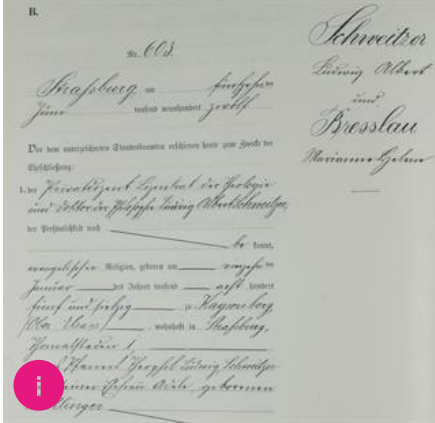 B.
Nr. 603.
Straßburg am fünfzehnten
Juni tausend neunhundert zwölf
Vor dem unterzeichneten Standesbeamten erschienen heute zum Zwecke der
Eheschließung:
1. der Privatdozent Lizentiat der Theologie
und Doktor der Philosophie Ludwig Albert Schweitzer,
der Persönlichkeit nach
be kannt,
evangelischer Religion, geboren am
Januar des Jahres tausend acht hundert
fünf und siebzig zu Kaysersberg
(Ober Elsass), wohnhaft in Straßburg,
Thomasstaden 1,
Pfarrers Ludwig Schweitzer
seiner Ehefrau Adele, geborenen
Schweitzer
Ludwig Albert
und
Bresslau
Marianne Helene
i